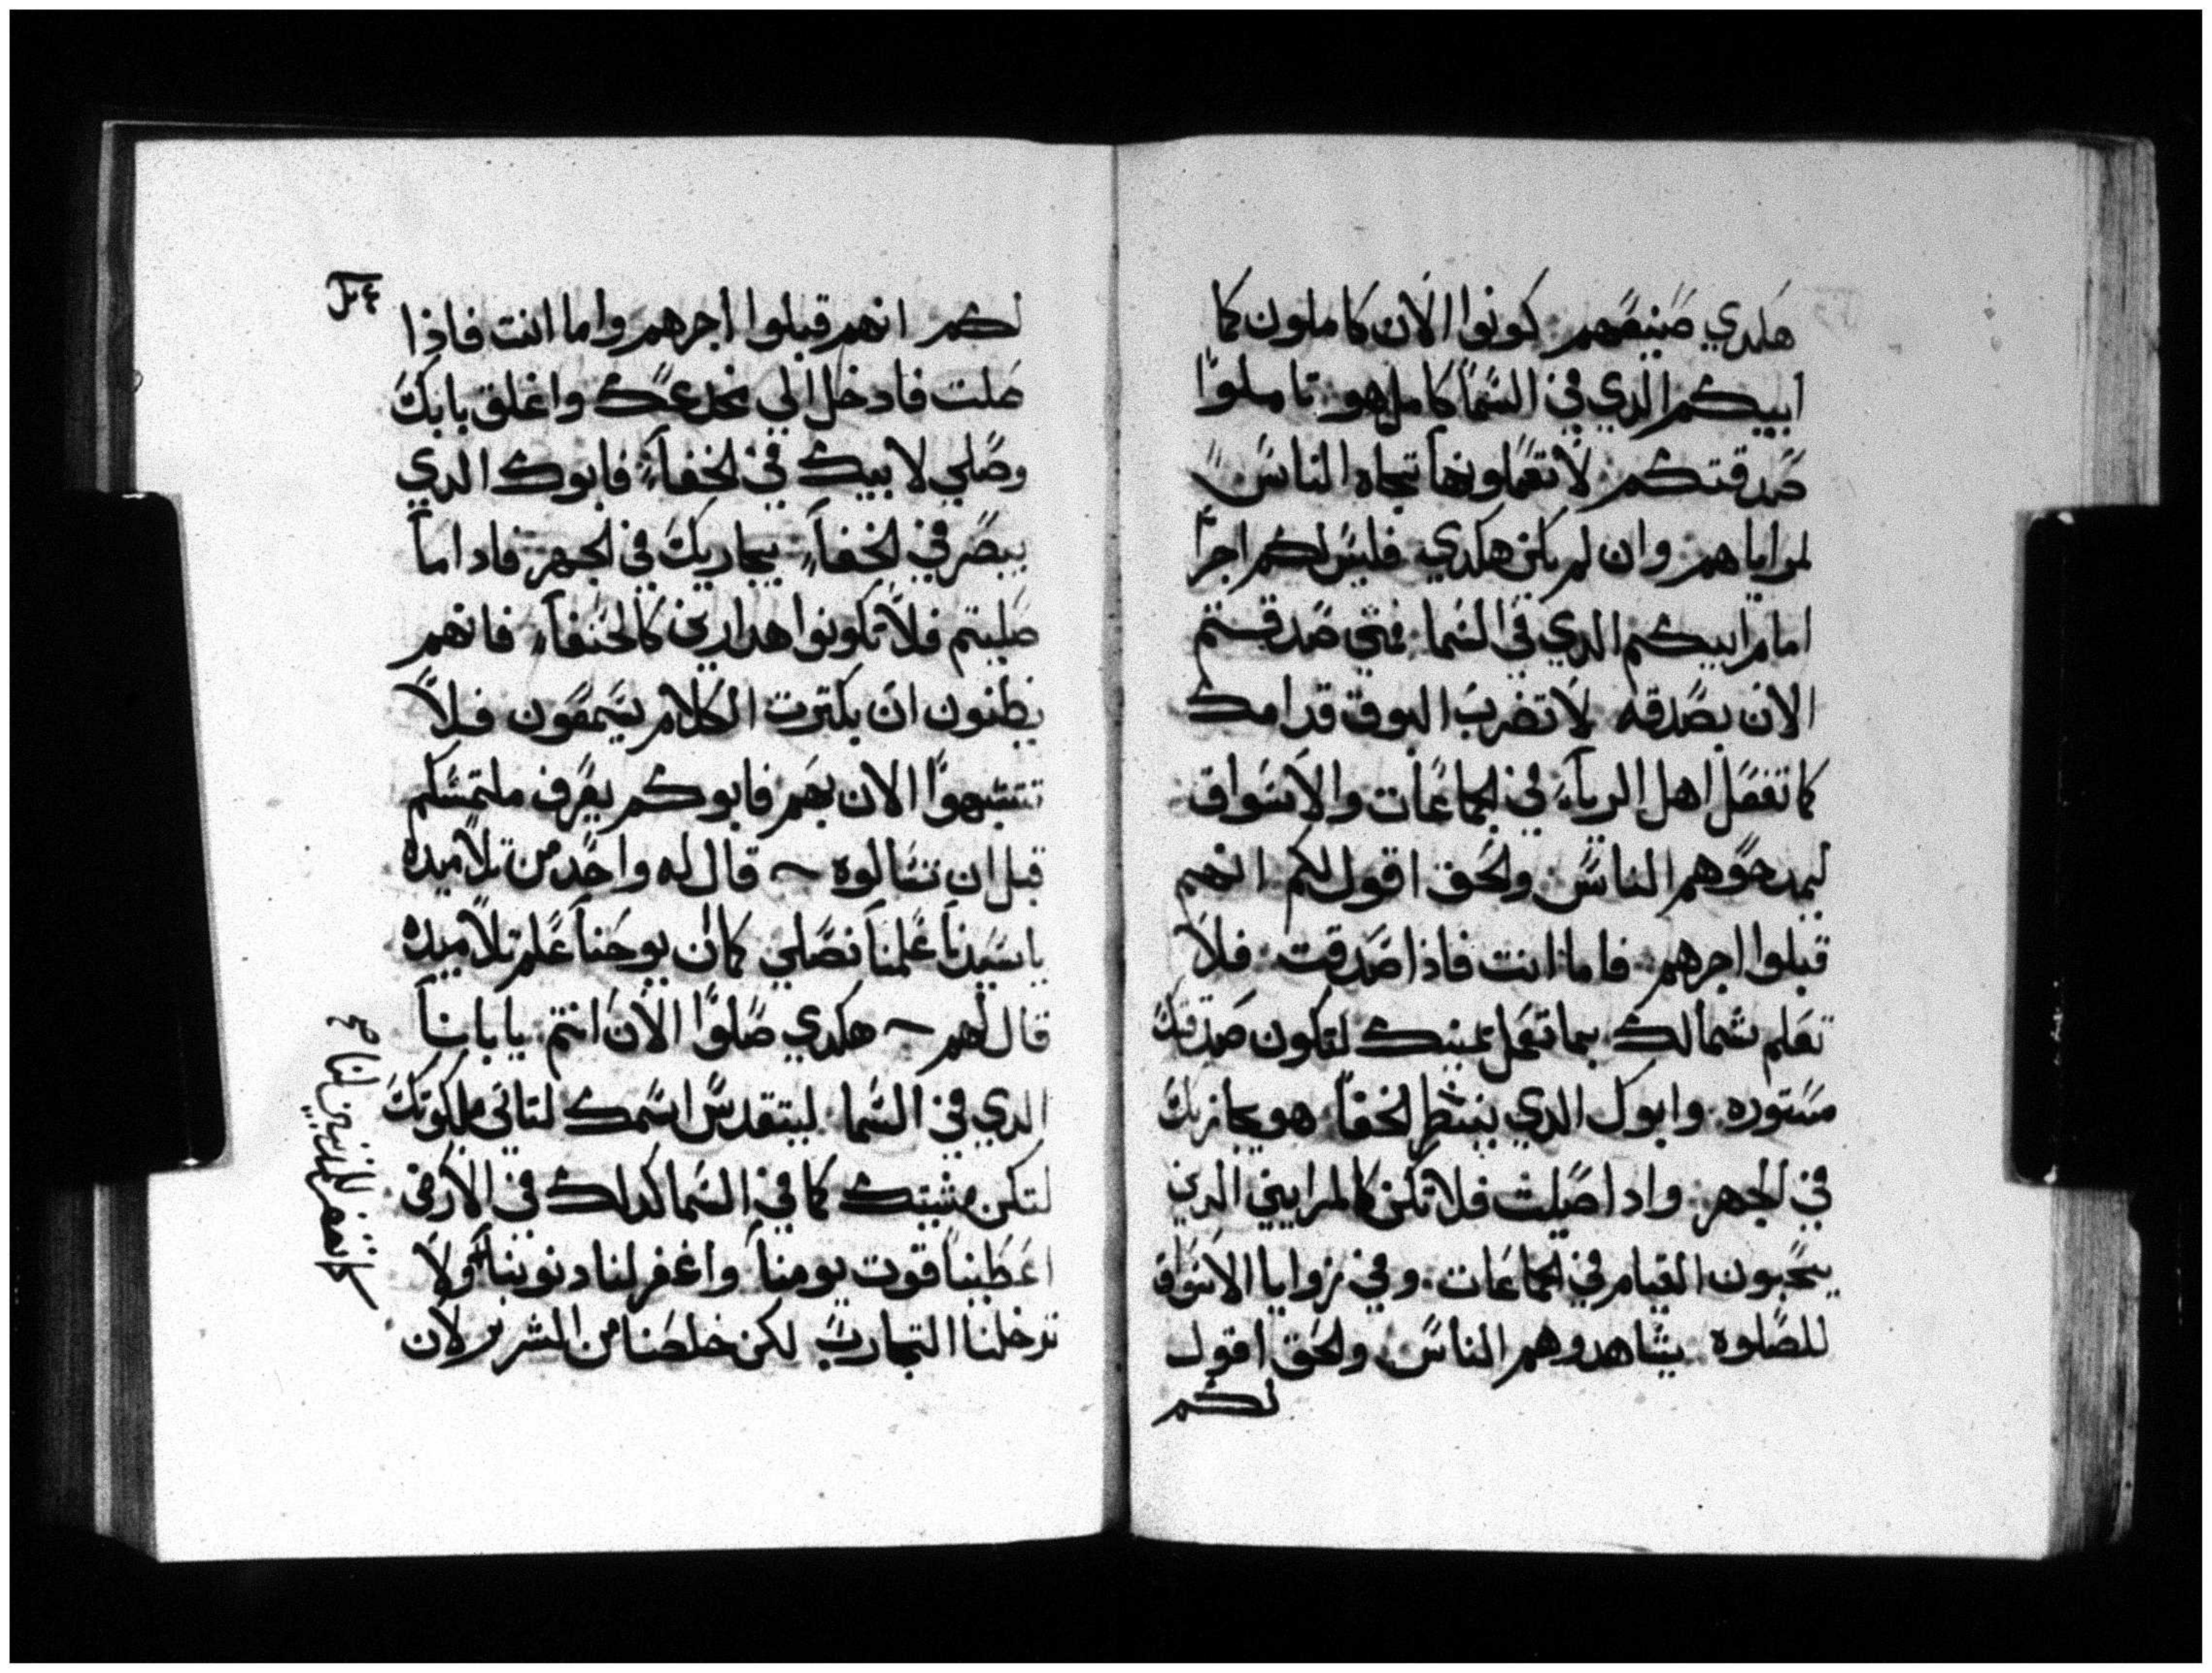 هكدي صنيعهم كونوا الان كاملون كما
ابيكم الدي في السما كامل هو تاملوا
صدقتكم لا تعملونها تجاه الناس
لمراياهم وان لم يكن هكدي فليس لكم اجرا
امام ابيكم الدي في السما فمتى صدقتم
الان بصدقه لا تضرب البوق قدامك
كما تفعل اهل الرياء في الجماعات والاسواق
ليمدحوهم الناس والحق اقول لكم انهم
قبلوا اجرهم فاما انت فاذا صدقت فلا
تعلم شمالك بما تعمل يمينك لتكون صدقتك
مستوره وابوك الدي ينظر الخفا هو يجازيك
في الجهر وادا صليت فلا تكن كالمرايين الدين
يحبون القيام في الجماعات وفي زوايا الاسواق
للصلوه يشاهدوهم الناس والحق اقول
لكم
لكم انهم قبلوا اجرهم واما انت فاذا
صلت فادخل الي مخدعك واغلق بابك
وصلي لابيك في الخفاء فابوك الدي
يبصر في الخفاء يجاريك في الجهر فادا ما
صليتم فلا تكونوا هدارين كالحنفاء فانهم
يظنون ان بكترت الكلام يسمعون فلا
تتشبهوا الان بهم فابوكم يعرف ملتمسكم
قبل ان تسالوه قال له واحد من تلاميده
يا سيدنا علمنا نصلي كما ان يوحنا علم تلاميده
قال لهم هكدي صلوا الان انتم يا بانا
الدي في السما ليتقدس اسمك لتاتي ملكوتك
لتكن مشيتك كما في السما كدلك في الارض
اعطينا قوت يومنا واغفر لنا دنوبنا ولا
تدخلنا التجارب لكن خلصنا من الشرير لان